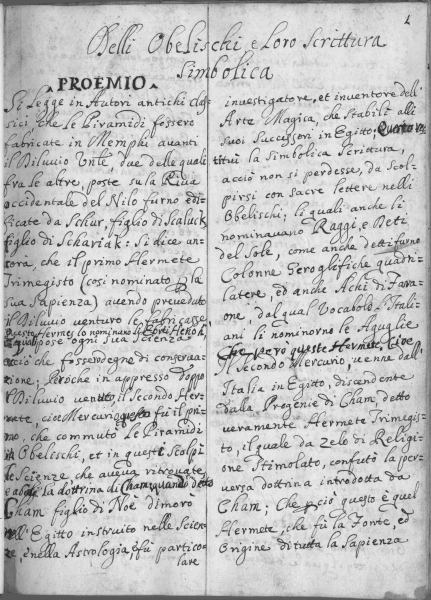 1
Delli Obelischi e Loro Scrittura
Simbolica
PROEMIO
Si Legge in Autori antichi clas-
sici, che le Piramidi fossero
fabricate in Memphi avanti
il Diluvio due delle quali
fra le altre, poste su la Riva
occidentale del Nilo furno edi-
ficate da figlio di
figlio di Schariak: Si dice an-
cora, che il primo Hermete
Trimegisto (cosi nominato p la
sua Sapienza) avendo preveduto
il Diluvio venturo le fabricasse
Hermes lo nominano
pose ogni sua scienza
acciò che fosserodegno di conserva-
zione; Peroche in appresso doppo
il Diluvio il Secondo Her-
mete, cioè Mercurio fù il pri-
mo, che commutò le Piramidi
in Obelischi, et in questi Scolpì
le Scienze, che aveva ritrovate
la dottrina di Cham quando detto
Cham figlio di Noè dimorò
nell'Egitto instruito nelle Scien-
ze, e nella Astrologia, e fù partico-
lare
investigatore, et inventore dell'
Arte Magica, che stabilì alli
suoi Successori in Egitto;
la Simbolica Scrittura,
acciò non si perdesse, da Scol-
pirsi con sacre lettere nelli
Obelischi; li quali anche li
nominavano Raggi, e Deti
del Sole, come anche detti furno
Colonne Geroglefiche quadri-
latere, ed anche Achi di Fara-
one, dal qual Vocabolo l'Itali-
ani li nominorno le Aguglie
Che però questo Hermete, cioe
Il secondo Mercurio, venne dall'
Italia in Egitto, discendente
dalla Progenie di Cham, detto
veramente Hermete Trimegis-
to, il quale da zelo di Religi-
one Stimolato, confutò la per-
versa dottrina introdotta da
Cham; Che p ciò questo è quel
Hermete, che fù la Fonte, ed
Origine di tutta la Sapienza